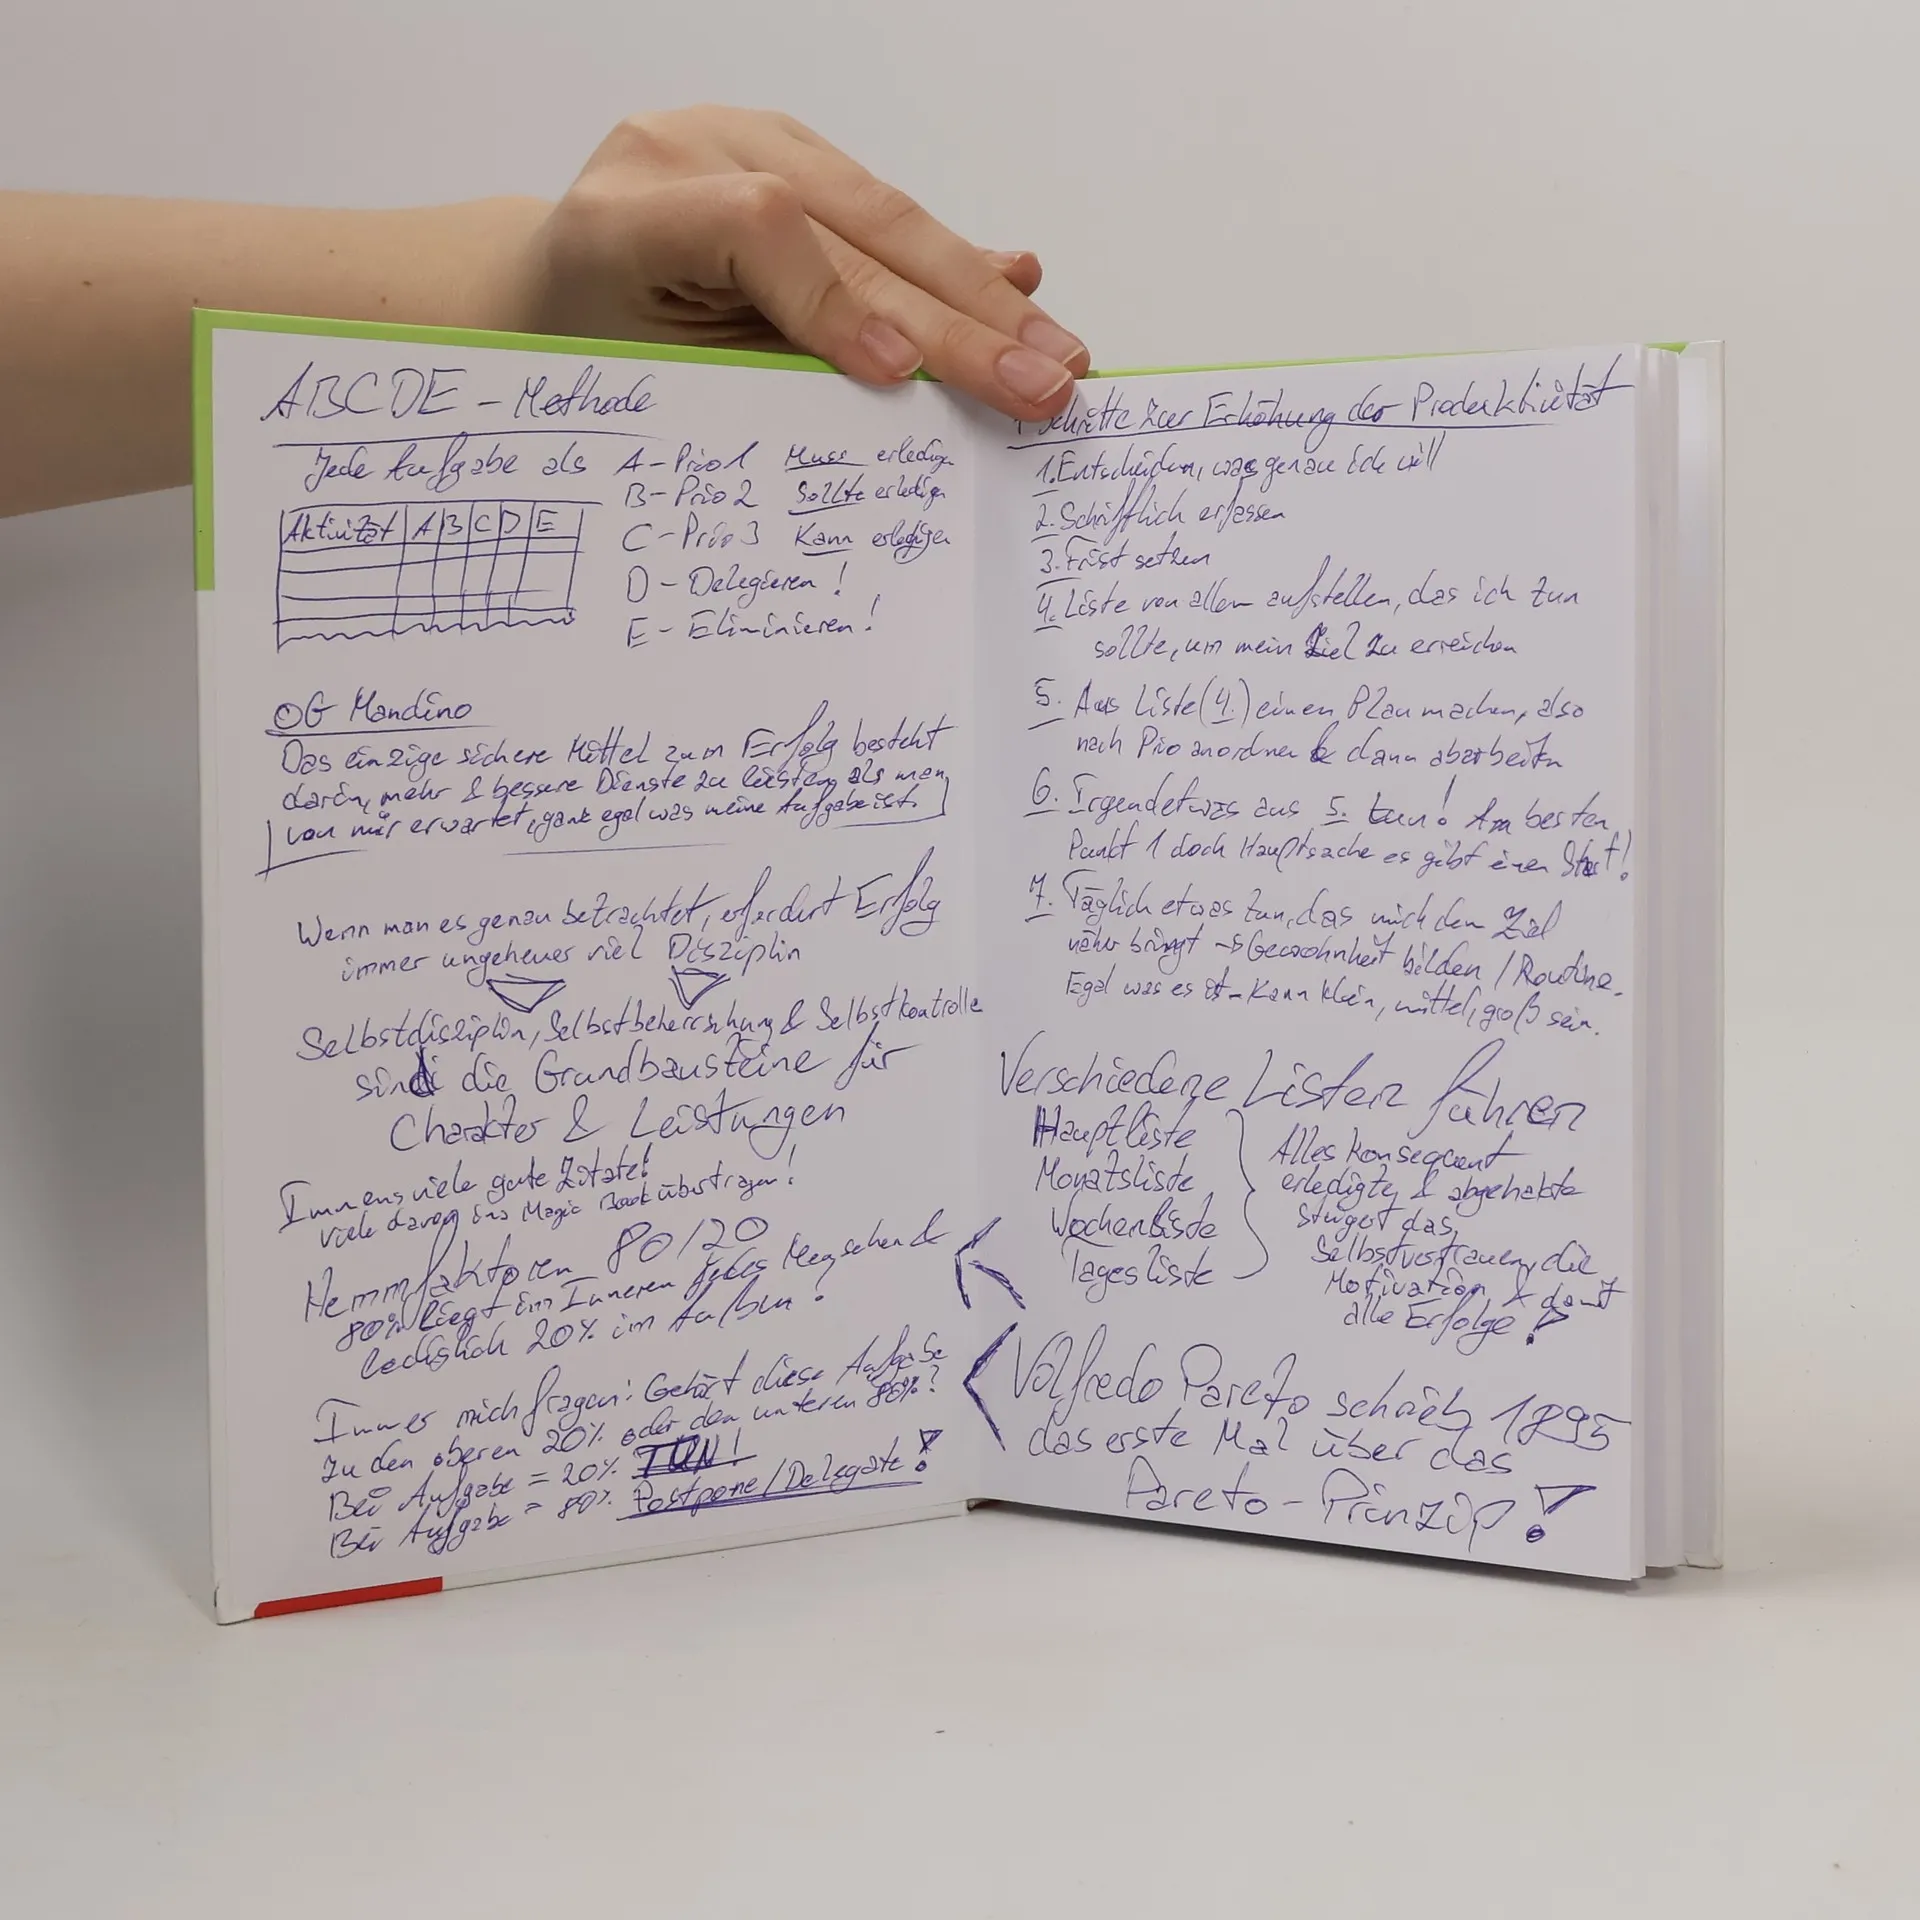 ABCDE - Methode
Jede Aufgabe als
A - Prio 1 Muss erledigen
B - Prio 2 Sollte erledigen
C - Prio 3 Kann erledigen
D - Delegieren!
E - Eliminieren!
Aktivität A B C D E
OG Mandino
Das einzige sichere Mittel zum Erfolg besteht
darin, mehr & bessere Dienste zu leisten als man
von mir erwartet, ganz egal was meine Aufgabe ist.
Wenn man es genau betrachtet, erfordert Erfolg
immer ungeheuer viel Disziplin
Selbstdisziplin, Selbstbeherrschung & Selbstkontrolle
sind die Grundbausteine für
Charakter & Leistungen
Immens viele gute Zitate!
viele davon ins Magic Book übertragen!
Hemmfaktoren 80/20
80% liegt im Inneren jedes Menschen &
lediglich 20% im Außen!
Immer mich fragen: Gehört diese Aufgabe
zu den oberen 20% oder den unteren 80%?
Bei Aufgabe = 20% TUN!
Bei Aufgabe = 80% Postpone/Delegate!
Schritte zur Erhöhung der Produktivität
1. Entscheiden, was genau ich will
2. Schriftlich erfassen
3. Frist setzen
4. Liste von allem aufstellen, das ich tun
sollte, um mein Ziel zu erreichen
5. Aus Liste (4.) einen Plan machen, also
nach Prio anordnen & dann abarbeiten
6. Irgendetwas aus 5. tun! Am besten
Punkt 1 doch Hauptsache es gibt einen Start!
7. Täglich etwas tun, das mich dem Ziel
näher bringt → Gewohnheit bilden / Routine.
Egal was es ist - Kann klein, mittel, groß sein.
Verschiedene Listen führen
Hauptliste
Monatsliste
Wochenliste
Tagesliste
Alles konsequent
erledigte & abgehakte
steigert das
Selbstvertrauen, die
Motivation & damit
alle Erfolge!
Vilfredo Pareto schrieb 1895
das erste Mal über das
Pareto-Prinzip!